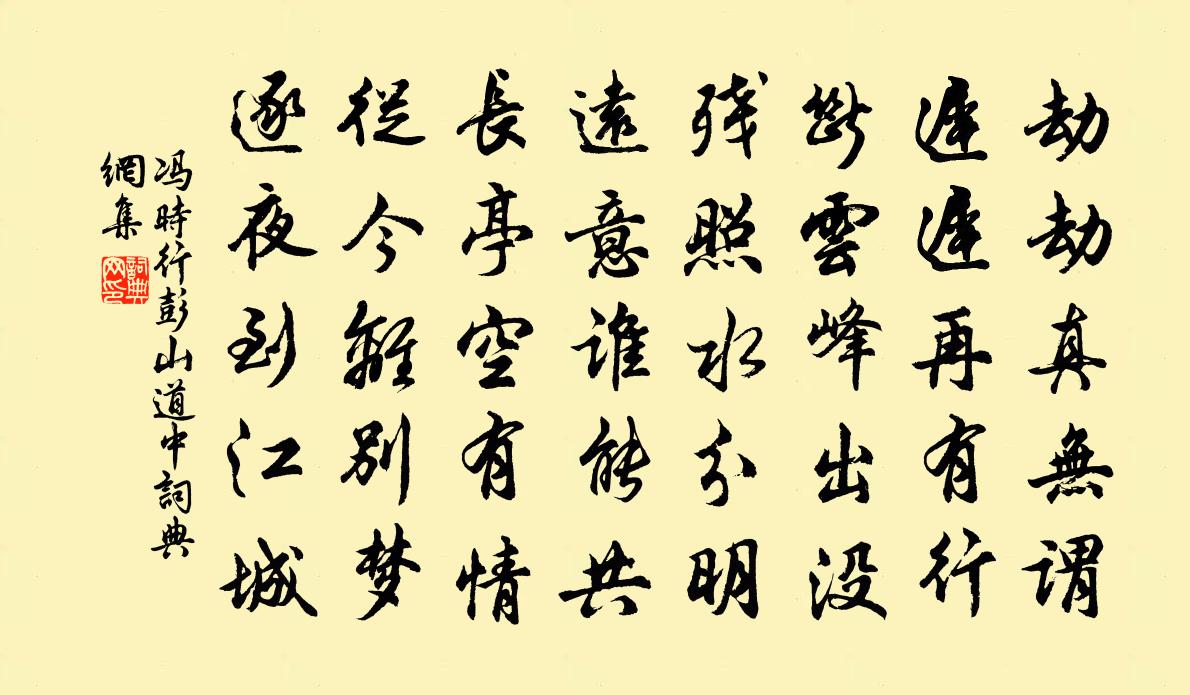 劫劫真無謂
遲遲再有行
斷雲峰出没
殘照水分明
遠意誰能共
長亭空有情
從今離別夢
逐夜到江城
馮時行彭山道中詞典
網集
詞典網印